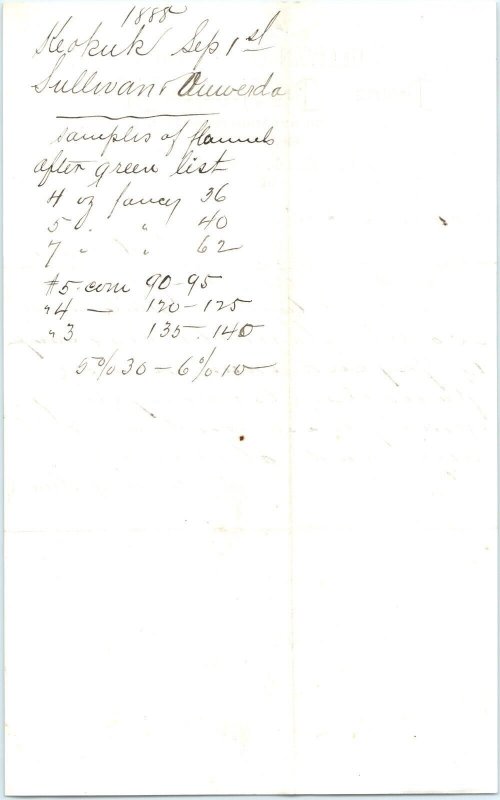 1888
Keokuk Sep 1st
Sullivan & Auwerda
samples of flannels
after green list
4 oz fancy 36
5 " " 40
7 " " 62
#5 com 90-95
"4 — 120-125
"3 135-140
5% 30 - 6% 10